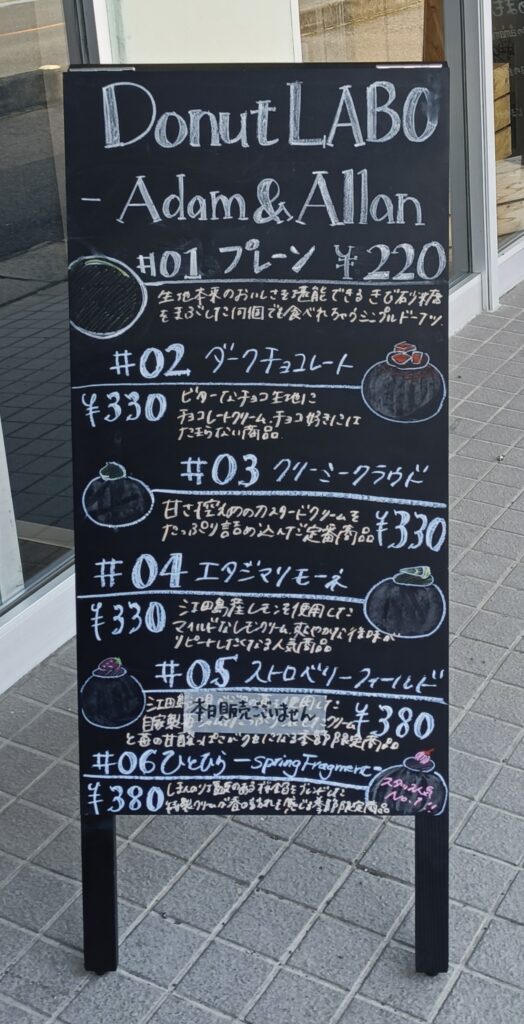 Donut LABO
- Adam & Allan
#01 プレーン ¥220
生地本来のおいしさを堪能できる きび砂糖
をまぶした何個でも食べれちゃうシンプルドーナツ.
#02 ダークチョコレート
¥330
ビターなチョコ生地に
チョコレートクリーム、チョコ好きには
たまらない商品.
#03 クリーミークラウド
甘さ控えめのカスタードクリームを
たっぷり詰め込んだ定番商品
¥330
#04 エタジマリモーネ
¥330
江田島産レモンを使用した
マイルドなレモンクリーム、爽やかな後味が
リピートしたくなる人気商品
#05 ストロベリーフィールド
江田島 使用した
自家製 クリーム
と苺の甘酸っぱ 季節限定商品
¥380
本日販売ございません
#06 ひとひら -Spring Fragment-
¥380
特製クリームが春の 季節限定商品
スタッフ人気
No.1!!